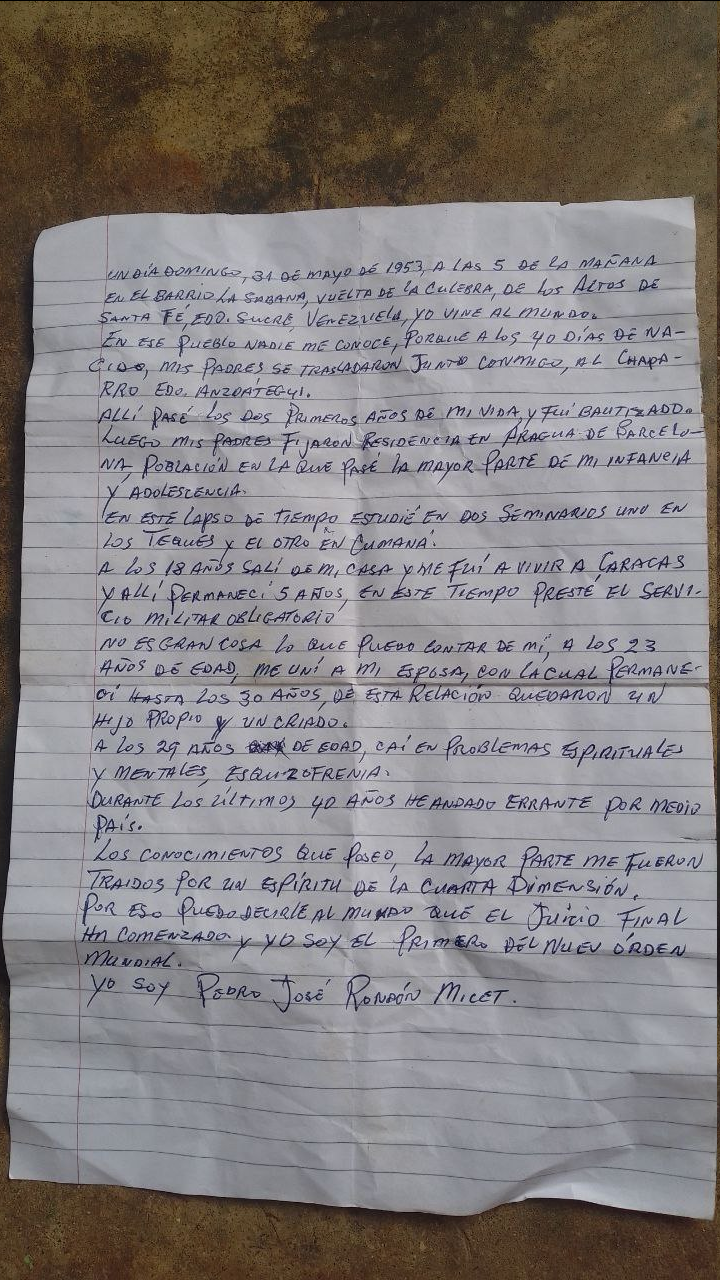 UN DÍA DOMINGO, 31 DE MAYO DE 1953, A LAS 5 DE LA MAÑANA
EN EL BARRIO LA SABANA, VUELTA DE LA CULEBRA, DE LOS ALTOS DE
SANTA FÉ, EDO. SUCRE, VENEZUELA, YO VINE AL MUNDO.
EN ESE PUEBLO NADIE ME CONOCE, PORQUE A LOS 40 DÍAS DE NA-
CIDO, MIS PADRES SE TRASLADARON JUNTO CONMIGO, AL CHAPA-
RRO EDO. ANZOÁTEGUI.
ALLÍ PASÉ LOS DOS PRIMEROS AÑOS DE MI VIDA, Y FUÍ BAUTIZADO.
LUEGO MIS PADRES FIJARON RESIDENCIA EN ARAGUA DE BARCELO-
NA, POBLACIÓN EN LA QUE PASÉ LA MAYOR PARTE DE MI INFANCIA
Y ADOLESCENCIA.
EN ESTE LAPSO DE TIEMPO ESTUDIÉ EN DOS SEMINARIOS UNO EN
LOS TEQUES Y EL OTRO EN CUMANÁ.
A LOS 18 AÑOS SALÍ DE MI CASA Y ME FUÍ A VIVIR A CARACAS
Y ALLÍ PERMANECÍ 5 AÑOS, EN ESTE TIEMPO PRESTÉ EL SERVI-
CIO MILITAR OBLIGATORIO
NO ES GRAN COSA LO QUE PUEDO CONTAR DE MÍ, A LOS 23
AÑOS DE EDAD, ME UNÍ A MI ESPOSA, CON LA CUAL PERMANE-
CÍ HASTA LOS 30 AÑOS, DE ESTA RELACIÓN QUEDARON UN
HIJO PROPIO Y UN CRIADO.
A LOS 29 AÑOS DE EDAD, CAÍ EN PROBLEMAS ESPIRITUALES
Y MENTALES, ESQUIZOFRENIA.
DURANTE LOS ÚLTIMOS 40 AÑOS HE ANDADO ERRANTE POR MEDIO
PAÍS.
LOS CONOCIMIENTOS QUE POSEO, LA MAYOR PARTE ME FUERON
TRAIDOS POR UN ESPÍRITU DE LA CUARTA DIMENSIÓN.
POR ESO PUEDO DECIRLE AL MUNDO QUE EL JUICIO FINAL
HA COMENZADO Y YO SOY EL PRIMERO DEL NUEV ÓRDEN
MUNDIAL.
YO SOY PEDRO JOSÉ RONDÓN MICET.